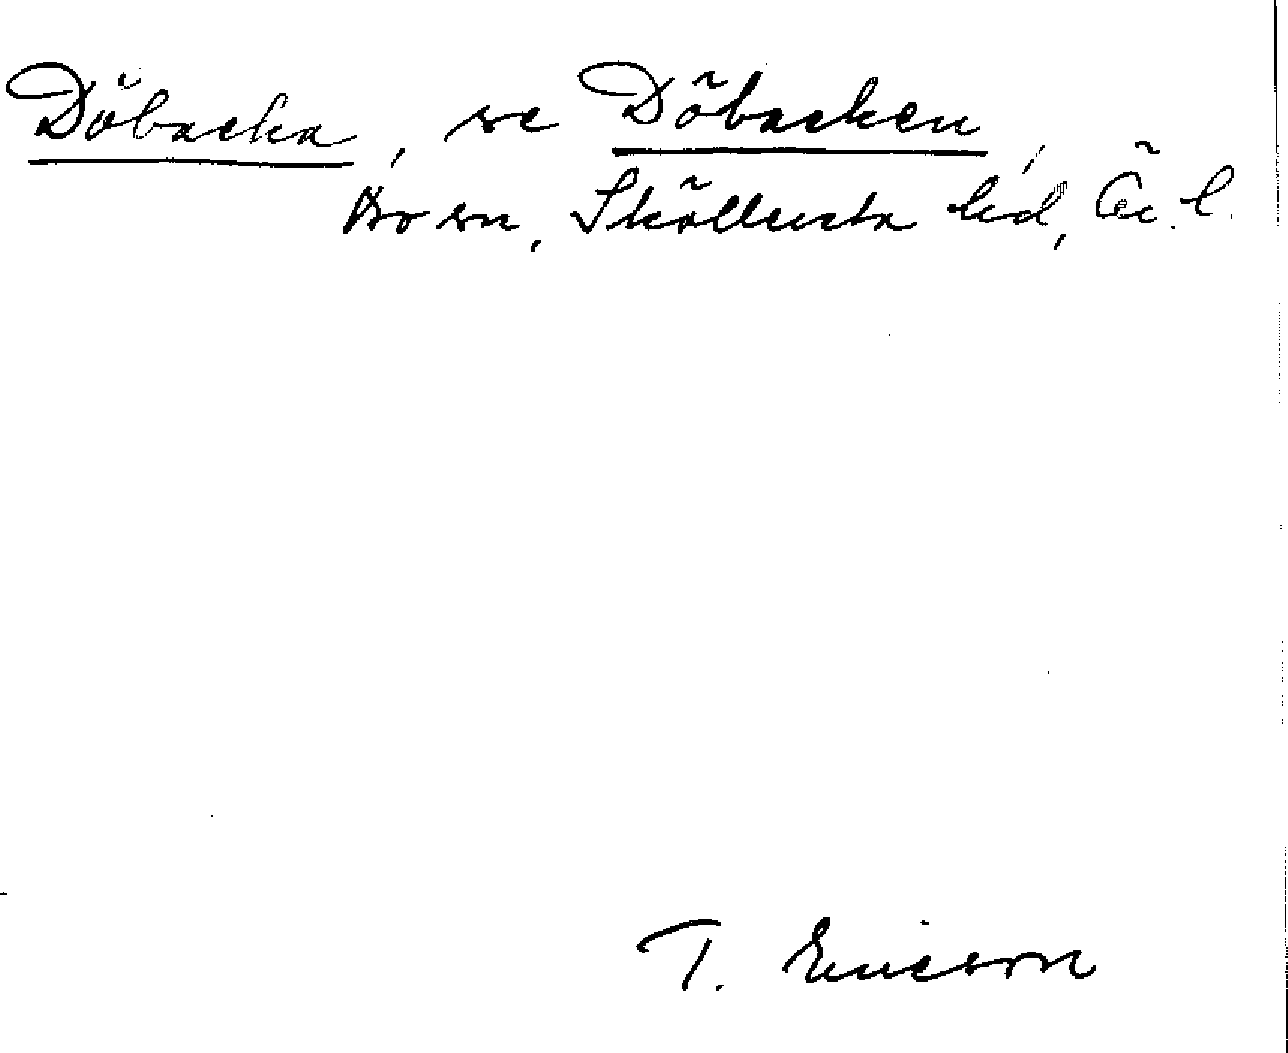 Döbacka, se Döbacken,
Bo sn, Sköllersta hd, Ör. l.
T. Ericson